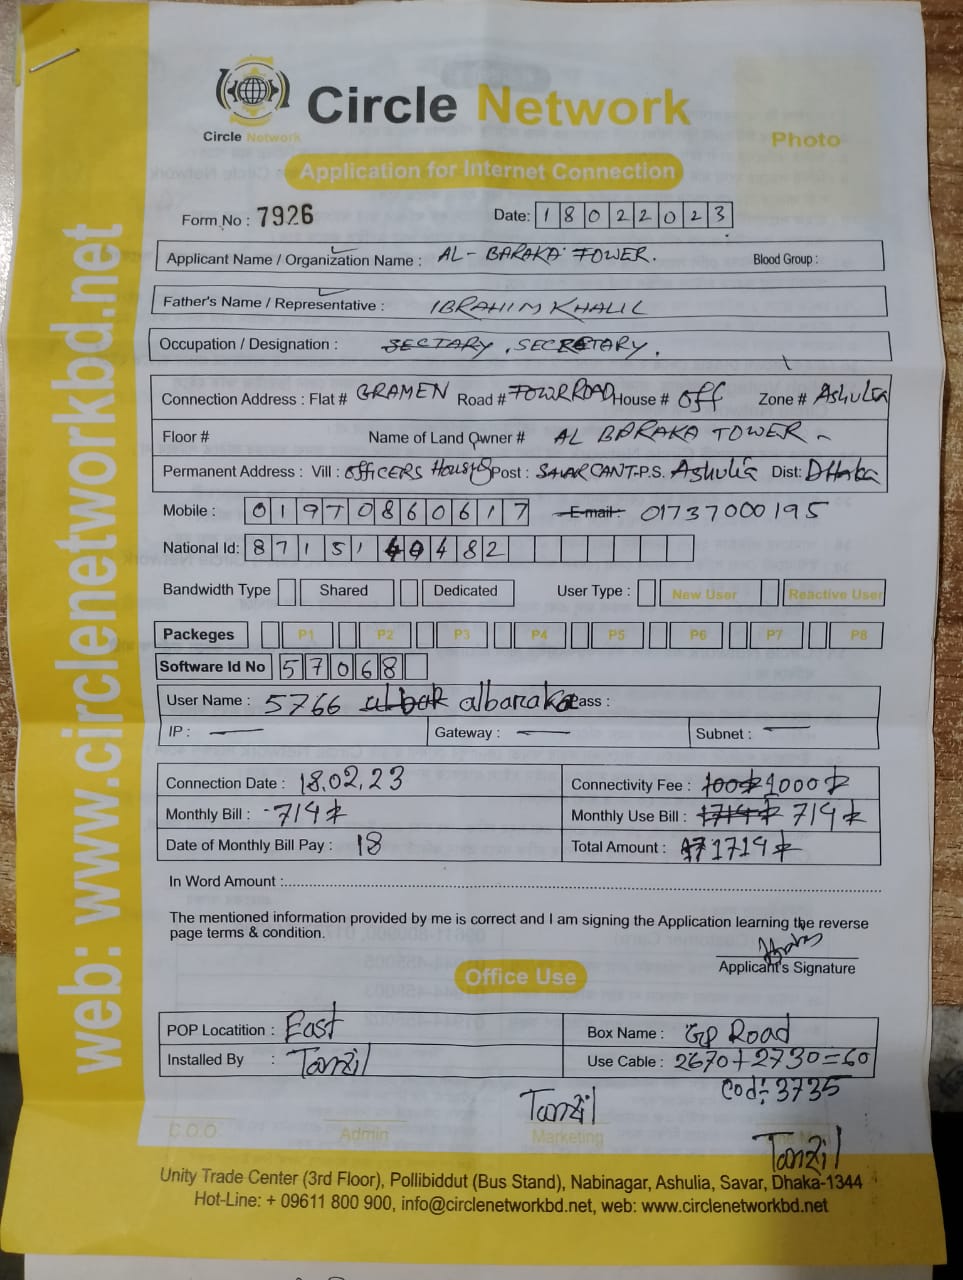 Circle Network
Circle Network
Photo
Application for Internet Connection
Form No : 7926
Date: 18022023
Applicant Name / Organization Name : AL-BARAKA TOWER. Blood Group :
Father's Name / Representative : IBRAHIM KHALIL
Occupation / Designation : SECTARY, SECRETARY.
Connection Address : Flat # GRAMEN Road # TOWRROAD House # Off Zone # Ashulia
Floor # Name of Land Owner # AL BARAKA TOWER
Permanent Address : Vill : OFFICERS Post : SAVAR CANT P.S. Ashulia Dist: Dhaka
Mobile : 01970860617 E-mail : 01737000195
National Id: 8715140482
Bandwidth Type Shared Dedicated User Type : New User Reactive User
Packeges P1 P2 P3 P4 P5 P6 P7 P8
Software Id No 57068
User Name : 5766 albak albaraka Pass :
IP : — Gateway : — Subnet : —
Connection Date : 18.02.23 Connectivity Fee : 1000
Monthly Bill : 719 Monthly Use Bill : 1719 719
Date of Monthly Bill Pay : 18 Total Amount : 1719
In Word Amount :
The mentioned information provided by me is correct and I am signing the Application learning the reverse
page terms & condition.
Applicant's Signature
Office Use
POP Locatition : East Box Name : GP Road
Installed By : Tanzil Use Cable : 2670+2730=60
Cod: 3735
Tanzil
C.O.O Admin Marketing
Tanzil
Unity Trade Center (3rd Floor), Pollibiddut (Bus Stand), Nabinagar, Ashulia, Savar, Dhaka-1344
Hot-Line: + 09611 800 900, info@circlenetworkbd.net, web: www.circlenetworkbd.net
web: www.circlenetworkbd.net